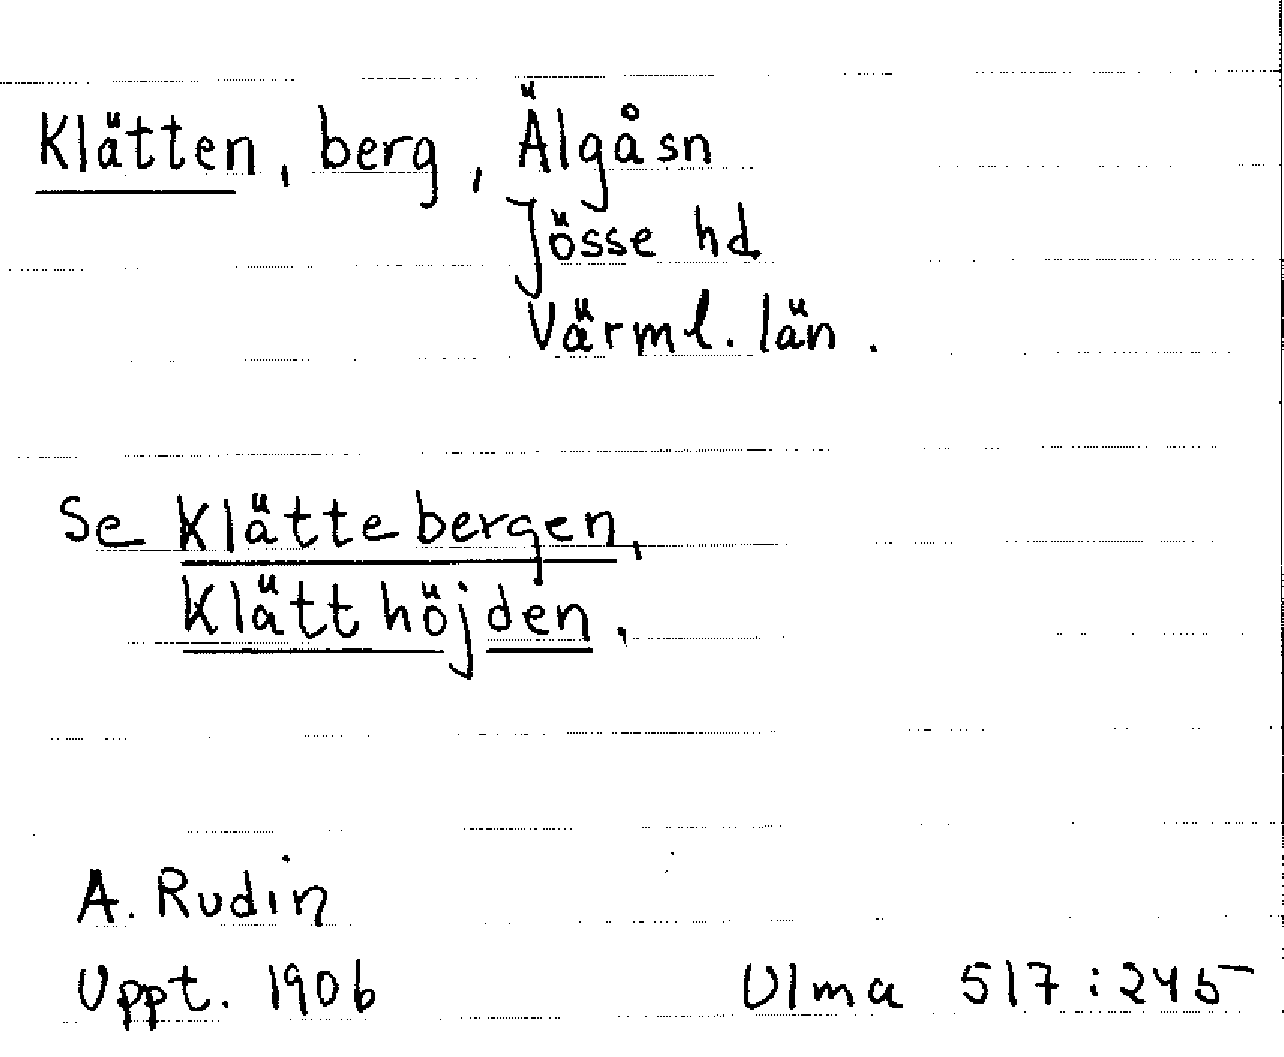 Klätten, berg, Älgåsn
Jösse hd
Värml. län.
Se Klättebergen,
Klätthöjden.
A. Rudin
Uppt. 1906
Ulma 517:245